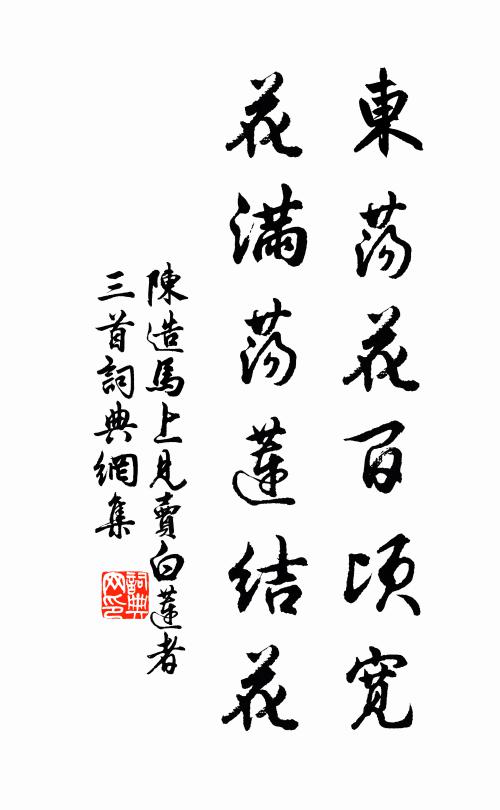 東蕩花百頃寬
花滿蕩蓮結花
陳造馬上見賣白蓮者
三首詞典網集
詞典
网印